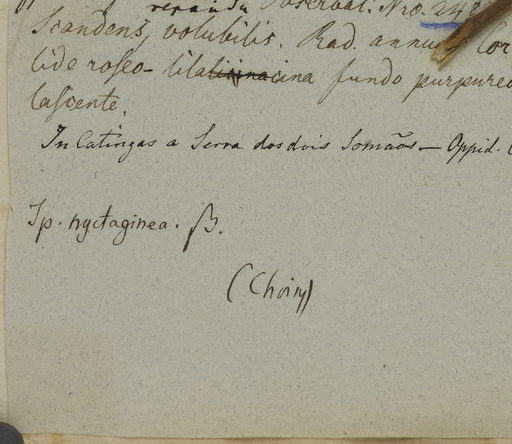 Observat. Nro. 24
Scandens, volubilis. Rad. annua. Cor
lide roseo-lilacina fundo purpureo
lascente.
In Catingas a Serra dos dois Somãos — Oppid.
Ip. nyctaginea. β.
(Choisy)